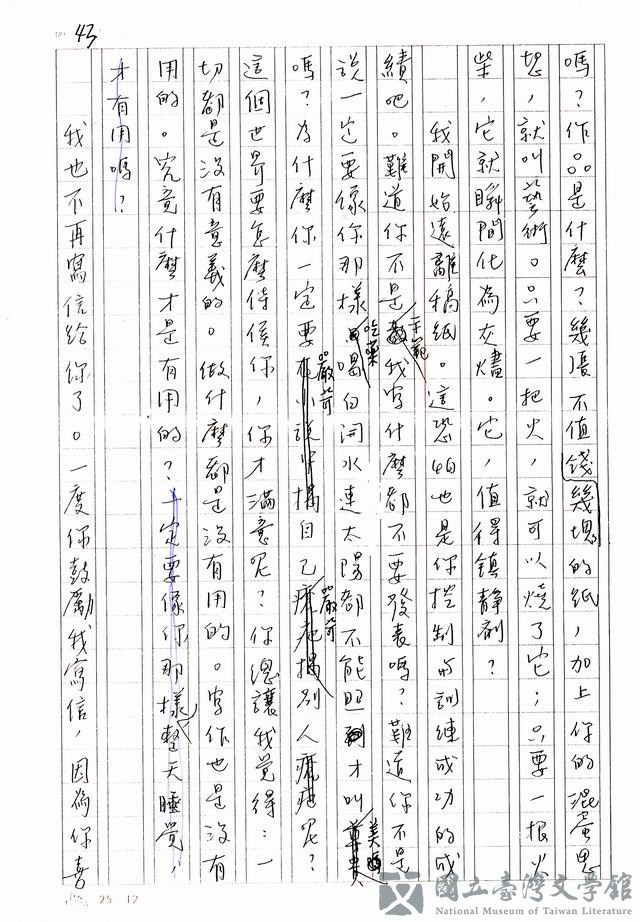 43
嗎？作品是什麼？幾張不值幾塊錢的紙，加上你的混蛋思
想，就叫藝術。只要一把火，就可以燒了它；只要一根火
柴，它就瞬間化為灰燼。它，值得鎮静劑？
我開始遠離稿紙。這恐怕也是你控制的訓練成功的成
績吧。難道你不是示範我寫什麼都不要發表嗎？難道你不是
說一定要像你那樣吃藥喝白開水連太陽都不能照到才叫美
嗎？為什麼你一定要嚴苛揭自己嚴苛揭別人瘡疤呢？
這個世界要怎麼侍候你，你才滿意呢？你總讓我覺得：一
切都是没有意義的。做什麼都是没有用的。寫作也是没有
用的。究竟什麼才是有用的？一定要像你那樣整天睡覺，
才有用嗎？
我也不再寫信給你了。一度你鼓勵我寫信，因為你喜
25 12
國立臺灣文學館
National Museum of Taiwan Literature